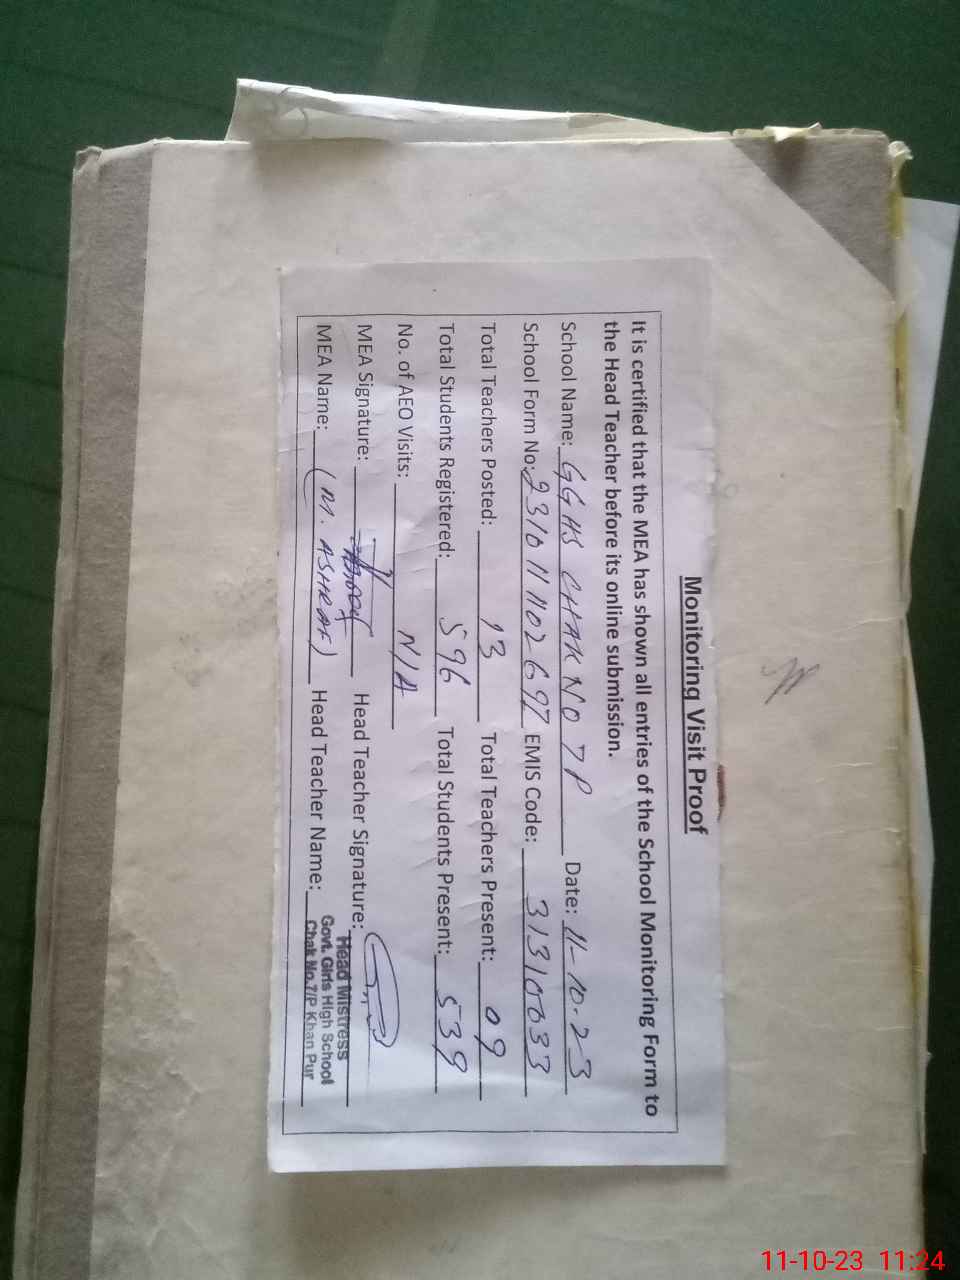 Monitoring Visit Proof
It is certified that the MEA has shown all entries of the School Monitoring Form to
the Head Teacher before its online submission.
School Name: GGHS CHAK NO 7P Date: 11-10-23
School Form No: 231011102697 EMIS Code: 31310033
Total Teachers Posted: 13 Total Teachers Present: 09
Total Students Registered: 596 Total Students Present: 539
No. of AEO Visits: N/A
MEA Signature: Head Teacher Signature:
MEA Name: (M. ASHRAF) Head Teacher Name:
Head Mistress
Govt. Girls High School
Chak No.7/P Khan Pur
11-10-23 11:24